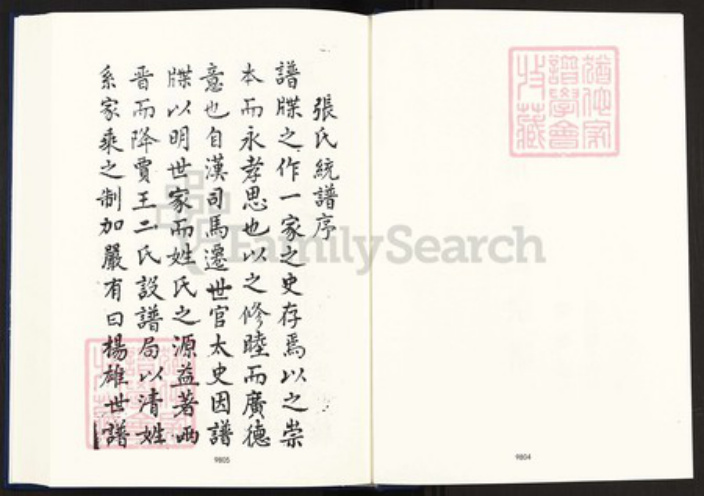 猶他家
譜學會
收藏
張氏統譜序
譜牒之作一家之史存焉以之崇
本而永孝思也以之修睦而廣德
意也自漢司馬遷世官太史因譜
牒以明世家而姓氏之源益著兩
晋而降賈王二氏設譜局以清姓
系家乘之制加嚴有曰楊雄世譜
9805
9804
FamilySearch